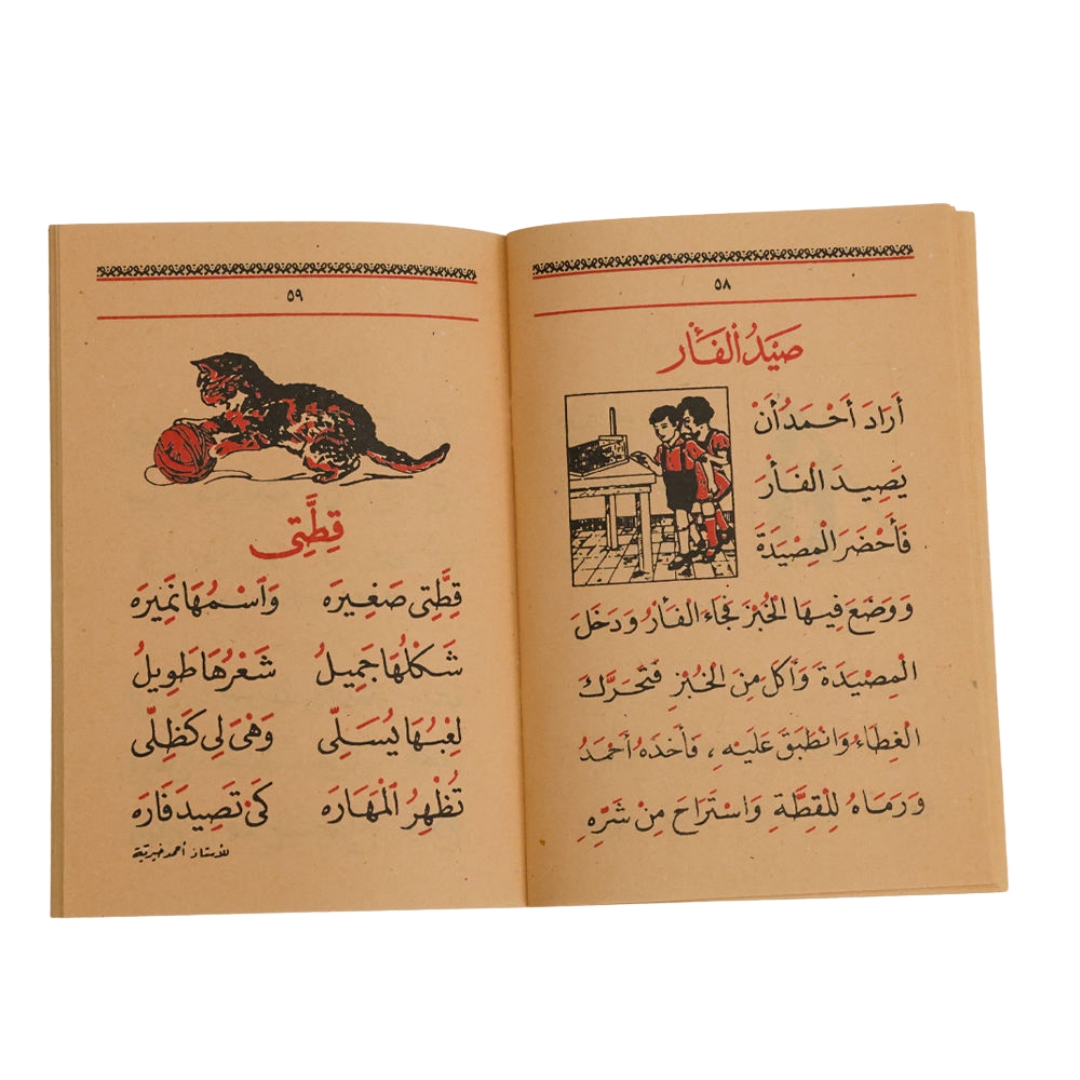 ٥٨
صَيْدُ الْفَأْر
أَرَادَ أَحْمَدُ أَنْ
يَصِيدَ الْفَأْرَ
فَأَحْضَرَ الْمِصْيَدَةَ
وَوَضَعَ فِيهَا الْخُبْزَ فَجَاءَ الْفَأْرُ وَدَخَلَ
الْمِصْيَدَةَ وَأَكَلَ مِنَ الْخُبْزِ فَتَحَرَّكَ
الْغِطَاءُ وَانْطَبَقَ عَلَيْهِ ، فَأَخَذَهُ أَحْمَدُ
وَرَمَاهُ لِلْقِطَّةِ وَاسْتَرَاحَ مِنْ شَرِّهِ
٥٩
قِطَّتِى
قِطَّتِى صَغِيرَه وَٱسْمُهَا نَمِيرَه
شَكْلُهَا جَمِيلُ شَعْرُهَا طَوِيلُ
لِعْبُهَا يُسَلِّى وَهْىَ لِى كَظِلِّى
تُظْهِرُ الْمَهَارَه كَىْ تَصِيدَ فَارَه
للأستاذ أحمد خيرية